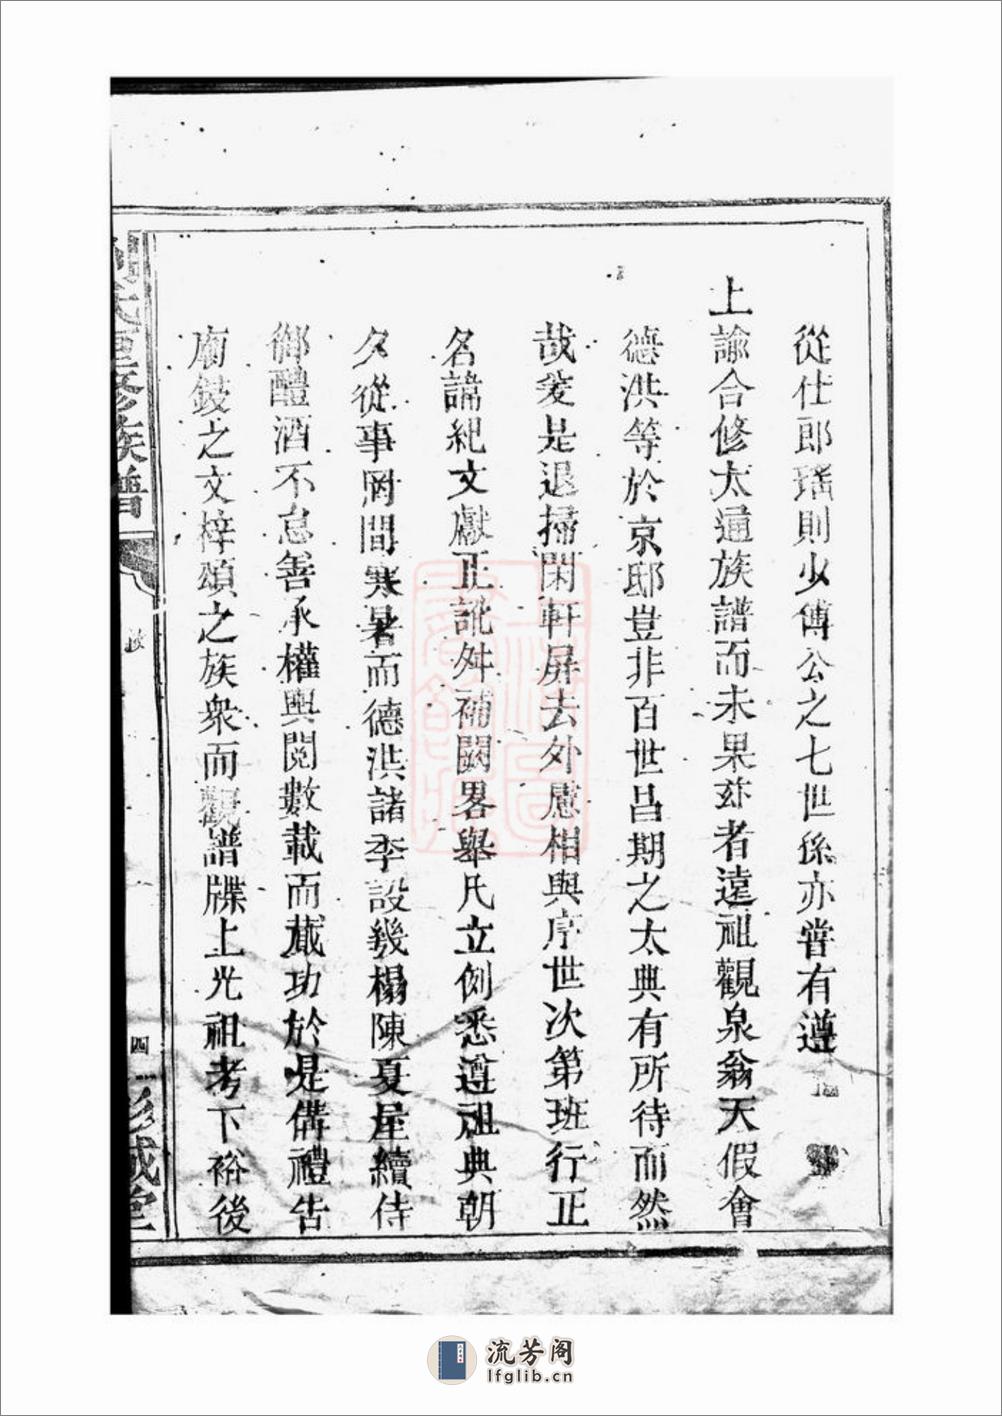 從仕郎瑤則少傅公之七世孫亦嘗有遵
上諭合修太通族譜而未果茲者遠祖觀泉翁天假會
德洪等於京邸豈非百世昌期之太典有所待而然
哉爰是退掃閑軒屏去外慮相與序世次第班行正
名諱紀文獻正訛舛補闕畧舉凡立例悉遵祖典朝
夕從事罔間寒暑而德洪諸李設幾榻陳夏屋續侍
御醴酒不怠善承權輿閱數載而蕆功於是備禮告
廟鋟之文梓頌之族衆而觀譜牒上光祖考下裕後
氏重修族譜
四
彭城堂
流芳阁
lfglib.cn